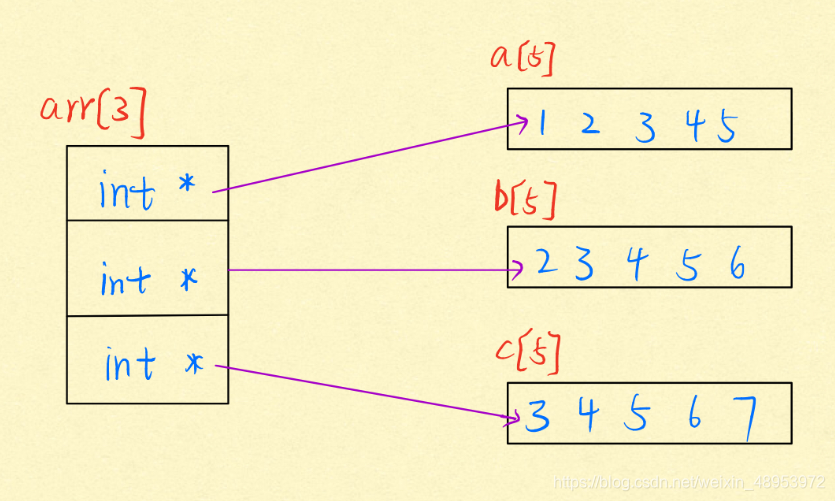 arr[3]
int *
int *
int *
a[5]
1 2 3 4 5
b[5]
2 3 4 5 6
c[5]
3 4 5 6 7
https://blog.csdn.net/weixin_48953972